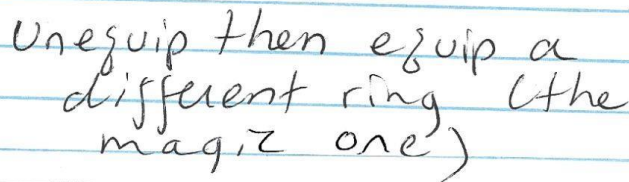 Unequip then equip a
different ring (the
magic one)